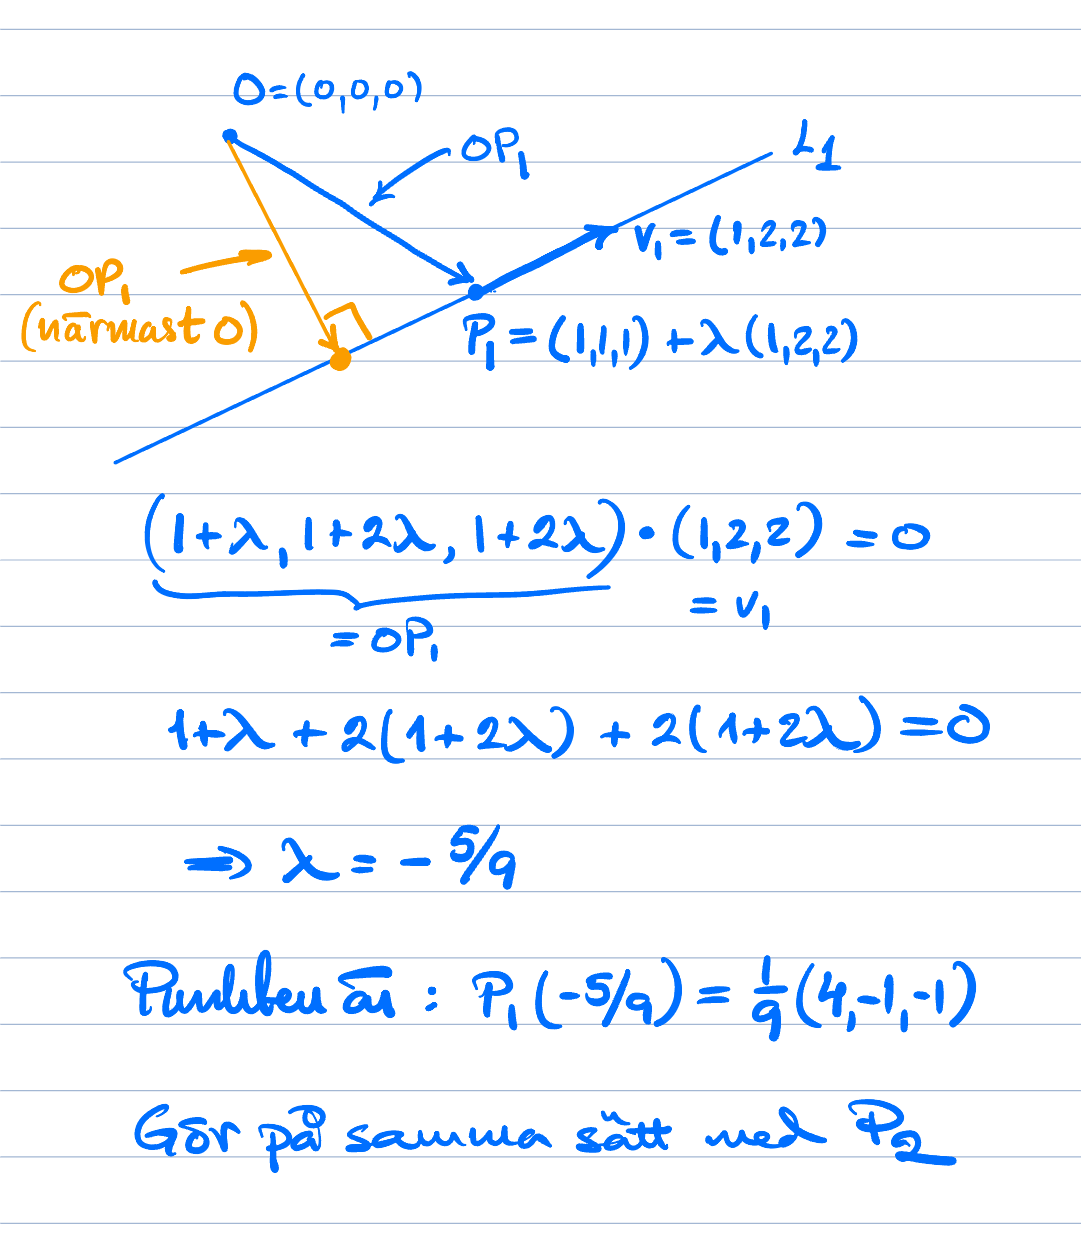 O=(0,0,0)
OP₁
L1
v₁ = (1,2,2)
OP₁
(närmast O)
P₁ = (1,1,1) + λ(1,2,2)
(1+λ, 1+2λ, 1+2λ) • (1,2,2) = 0
= OP₁
= v₁
1+λ + 2(1+2λ) + 2(1+2λ) = 0
⇒ λ = - 5/9
Punkten är : P₁(-5/9) = 1/9 (4,-1,-1)
Gör på samma sätt med P₂